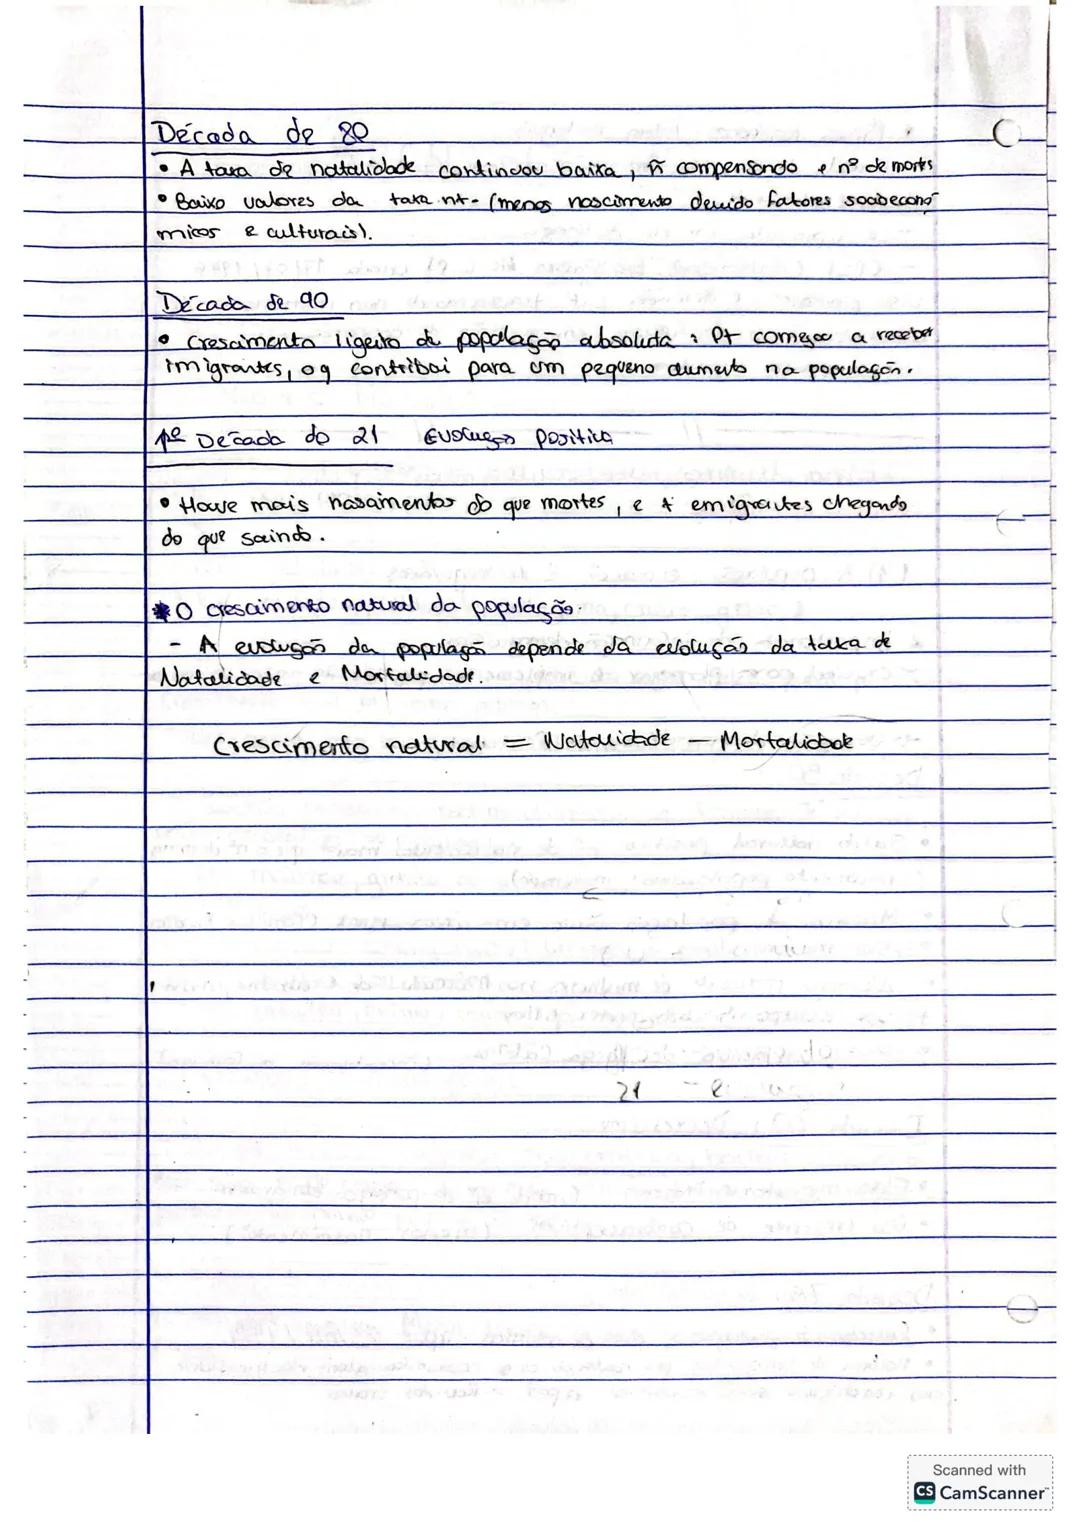 Década de 80
• A taxa de natalidade continuou baixa, ñ compensando o nº de mortes
• Baixo valores da taxa nt- (menos nascimento devido fatores socioeconó
micos e culturais).
Década de 90
• Crescimento ligeiro de população absoluta: Pt começou a receber
imigrantes, oq contribui para um pequeno aumento na população.
1ª Década do 21 Evolução positiva
• Houve mais nascimentos do que mortes, e + emigrantes chegando
do que saindo.
* O crescimento natural da população
- A evolução da população depende da evolução da taxa de
Natalidade e Mortalidade.
Crescimento natural = Natalidade - Mortalidade
21
Scanned with
CS CamScanner